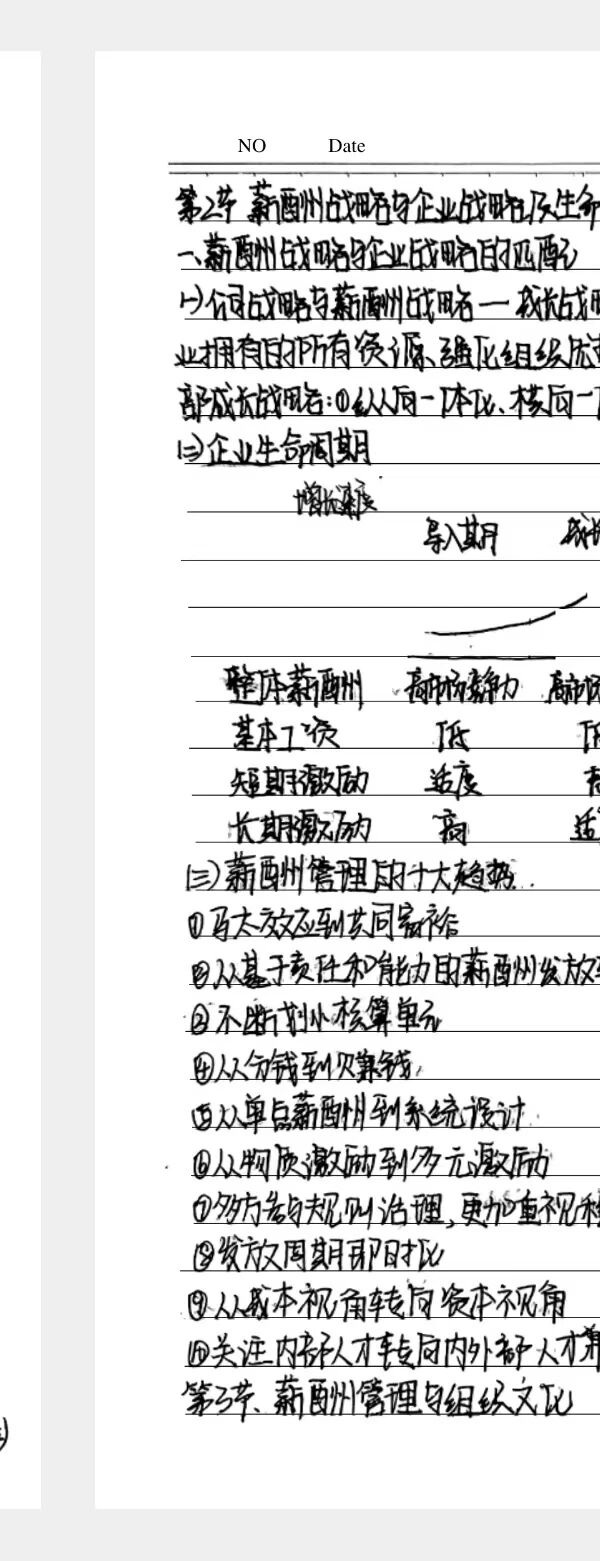 NO Date
第2节 薪酬战略与企业战略及生命
一、薪酬战略与企业战略的匹配
(一)公司战略与薪酬战略一 成长战略
业拥有的所有资源、强化组织优
部成长战略:①纵向一体化、横向一
(二)企业生命周期
增长速度
导入期 成长
整体薪酬 高市场竞争力 高市场
基本工资 低
短期激励 适度
长期激励 高 适
(三)薪酬管理的十大趋势.
①马太效应到共同富裕
②从基于责任和能力的薪酬发放
③不断划小核算单元
④从分钱到赚钱
⑤从单点薪酬到系统设计
⑥从物质激励到多元激励
⑦多方参与规则治理,更加重视
⑧发放周期即时化
⑨从成本视角转向资本视角
⑩关注内部人才转向内外部人才
第3节、薪酬管理与组织文化